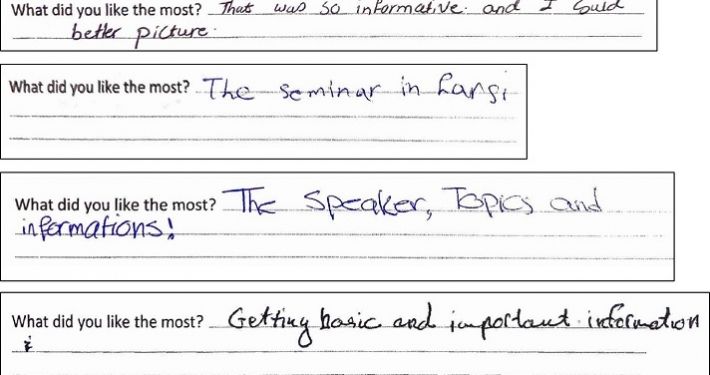 What did you like the most? That was so informative. and I could
better picture.
What did you like the most? The seminar in Farsi
What did you like the most? The Speaker, Topics and
informations!
What did you like the most? Getting basic and important information